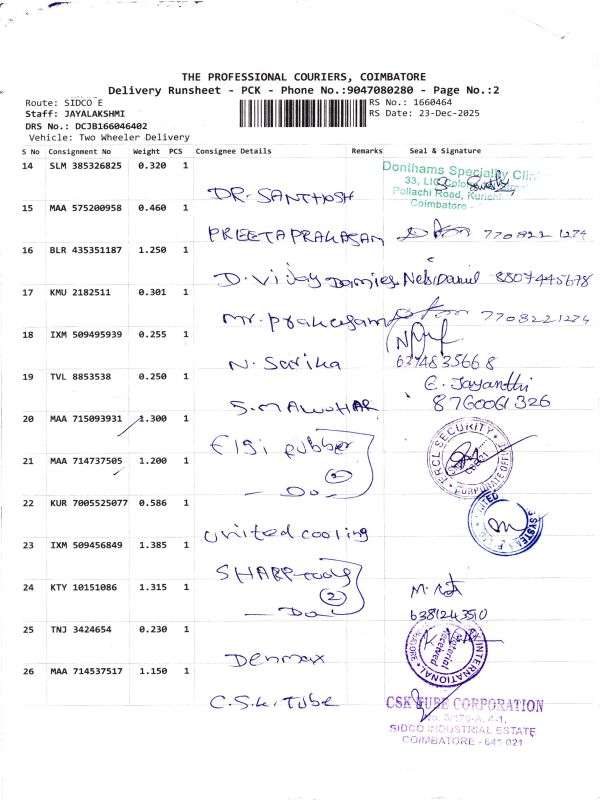 THE PROFESSIONAL COURIERS, COIMBATORE
Delivery Runsheet - PCK - Phone No.:9047080280 - Page No.:2
Route: SIDCO E
RS No.: 1660464
Staff: JAYALAKSHMI
RS Date: 23-Dec-2025
DRS No.: DCJB166046402
Vehicle: Two Wheeler Delivery
S No Consignment No Weight PCS Consignee Details Remarks Seal & Signature
14 SLM 385326825 0.320 1
Donthams Speciality Clinic
33, LIC Colony
Pollachi Road, Kurichi
Coimbatore -
DR. SANTHOSH
15 MAA 575200958 0.460 1
PREETAPRAKASAM 7708221274
16 BLR 435351187 1.250 1
D. Vijay 8807445678
17 KMU 2182511 0.301 1
Mr. Prakasam 7708221274
18 IXM 509495939 0.255 1
N. Sarika 6374835668
19 TVL 8853538 0.250 1
E. Jayanthi
S. MANOHAR 8760061326
20 MAA 715093931 1.300 1
Elgi Rubber
ERCL SECURITY
CORPORATE OFFICE
21 MAA 714737505 1.200 1
2
- Do -
22 KUR 7005525077 0.586 1
UNITED
SYSTEMS
united cooling
23 IXM 509456849 1.385 1
SHARP tools
24 KTY 10151086 1.315 1
2
- Do
6381243510
25 TNJ 3424654 0.230 1
SK INTERNATIONAL
Material
Received
Denmax
26 MAA 714537517 1.150 1
C.S.K. Tube
CSK TUBE CORPORATION
No. 3/170-A, 4-1,
SIDCO INDUSTRIAL ESTATE
COIMBATORE - 641 021